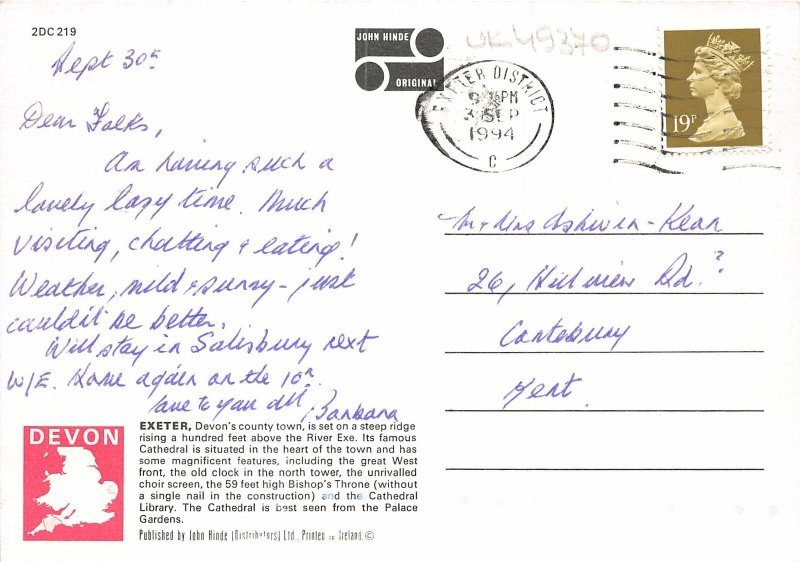 2DC 219
Sept 30th
Dear Folks,
Am having such a
lovely lazy time. Much
visiting, chatting & eating!
Weather, mild & sunny - just
couldn't be better.
Will stay in Salisbury next
W/E. Home again on the 10th.
Love to you all, Barbara
JOHN HINDE
ORIGINAL
UK49370
EXETER DISTRICT
PM
SEP
1994
C
19P
Mr & Mrs Ashwin-Kean
26, Hillview Rd.?
Canterbury
Kent.
DEVON
EXETER, Devon's county town, is set on a steep ridge
rising a hundred feet above the River Exe. Its famous
Cathedral is situated in the heart of the town and has
some magnificent features, including the great West
front, the old clock in the north tower, the unrivalled
choir screen, the 59 feet high Bishop's Throne (without
a single nail in the construction) and the Cathedral
Library. The Cathedral is best seen from the Palace
Gardens.
Published by John Hinde (Distributors) Ltd., Printed in Ireland. ©